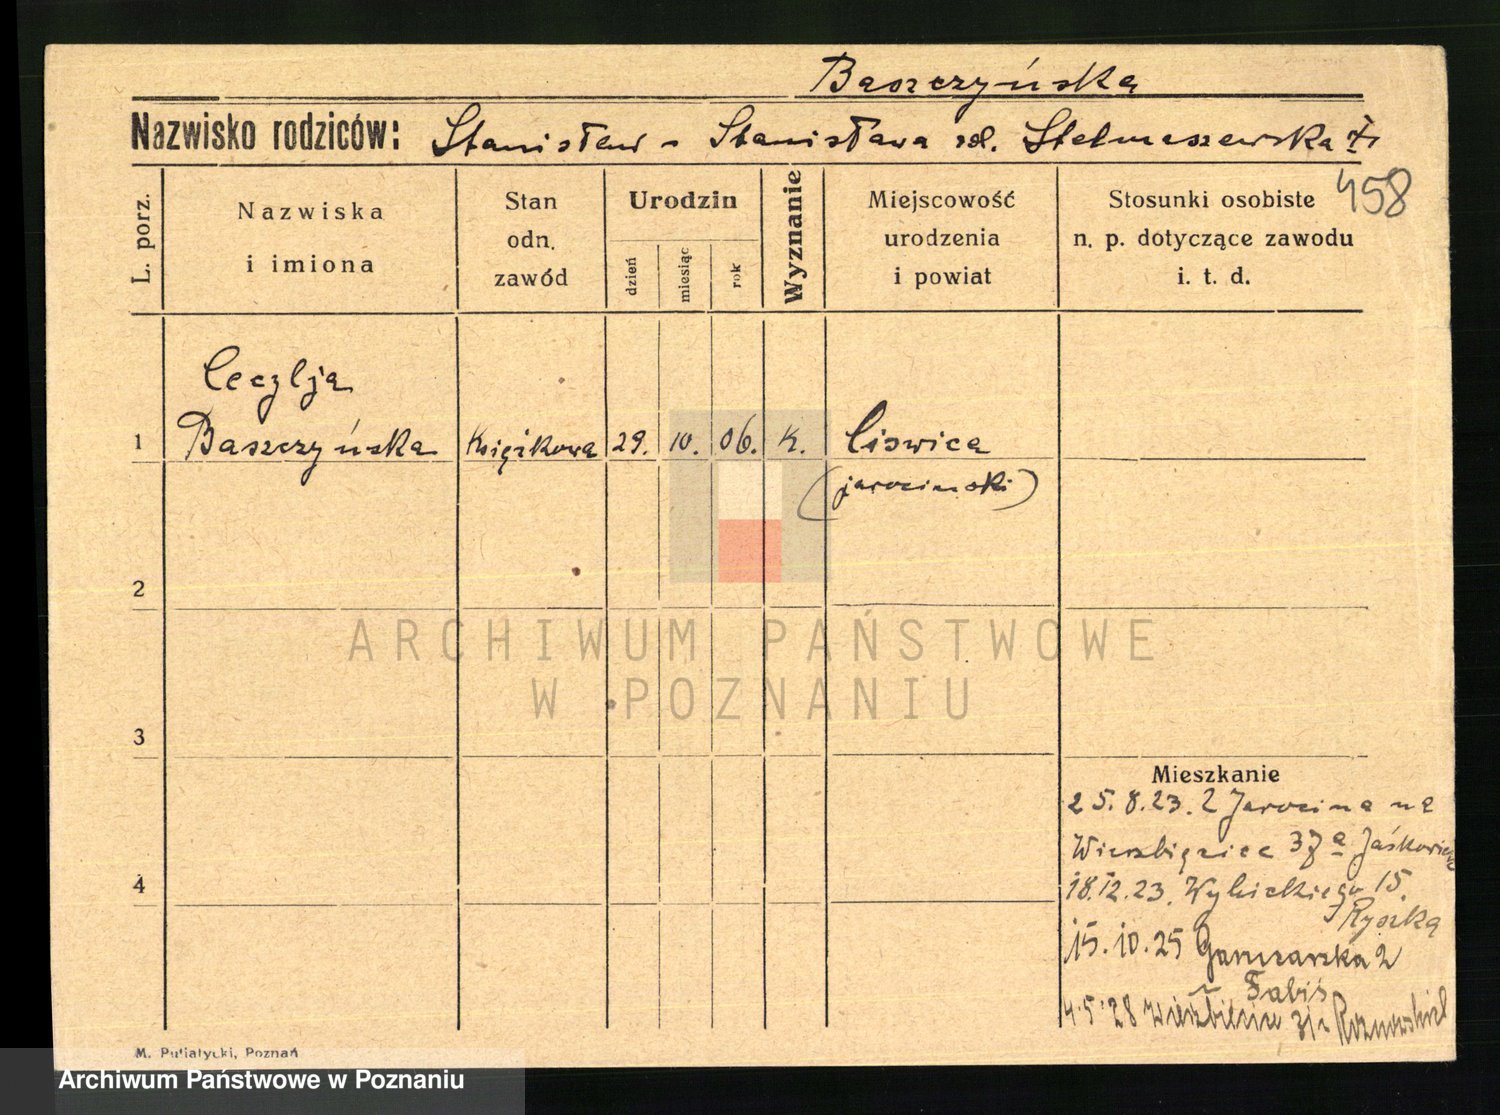 Baszczyńska
Nazwisko rodziców: Stanisław - Stanisława zd. Stelmaszewska
458
L. porz.
Nazwiska i imiona
Stan odn. zawód
Urodzin
dzień miesiąc rok
Wyznanie
Miejscowość urodzenia i powiat
Stosunki osobiste n. p. dotyczące zawodu i. t. d.
Cecylja
1 Baszczyńska Księżkowa 29. 10. 06. K. Ciświca
(jarocinski)
2
ARCHIWUM PAŃSTWOWE
W POZNANIU
3
Mieszkanie
25.8.23. z Jarocina na
Wierzbięcice 37a
4
18.12.23. Wybickiego 15.
Ryszka
15.10.25 Garncarska 2
Fabiś
4.5.28 Wierzbięcice
M. Putiatycki, Poznań
Archiwum Państwowe w Poznaniu